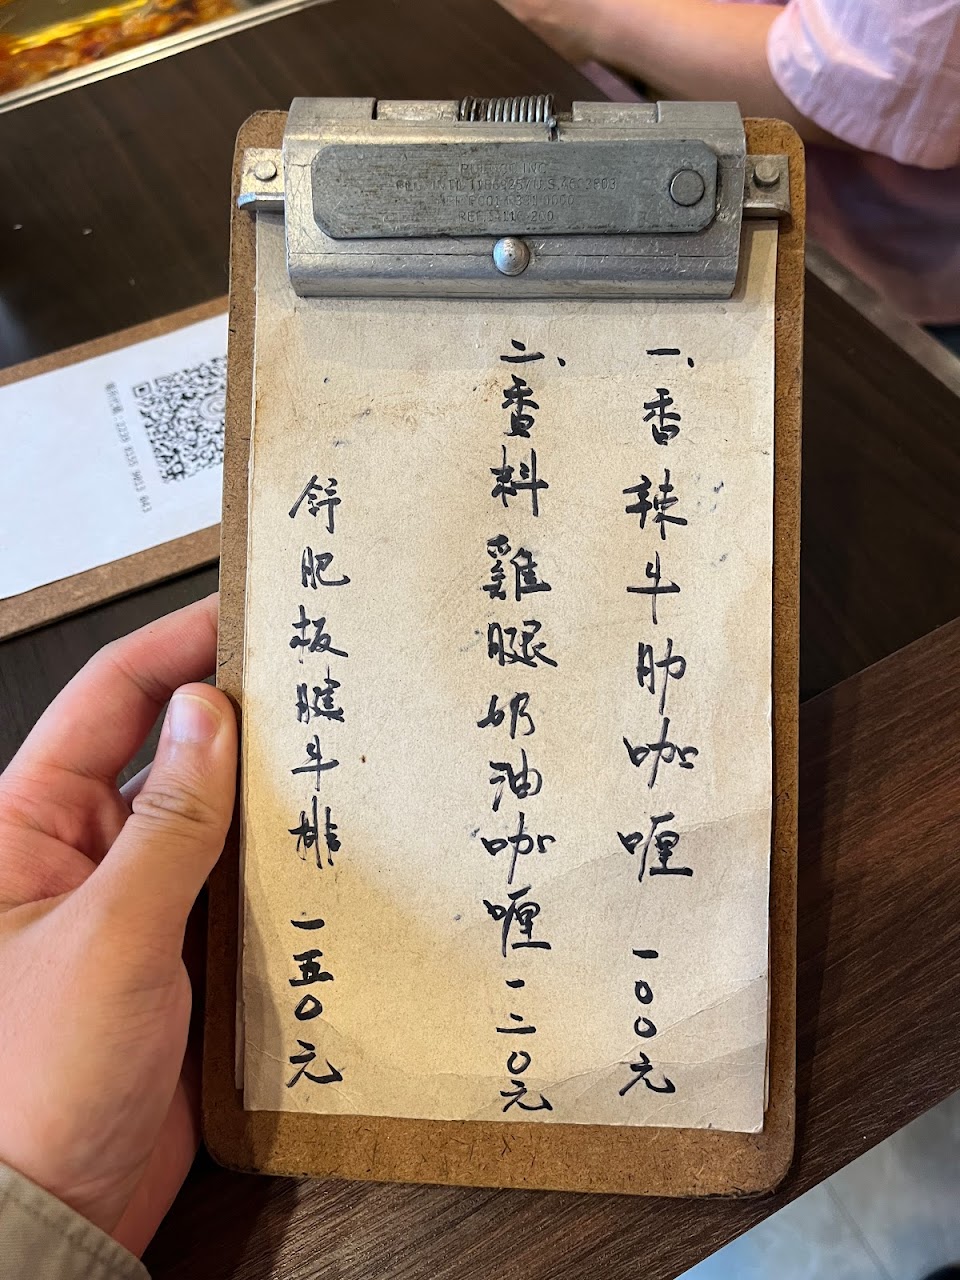 一、香辣牛肋咖喱 一00元
二、香料雞腿奶油咖喱 一二0元
舒肥板腱牛排 一五0元